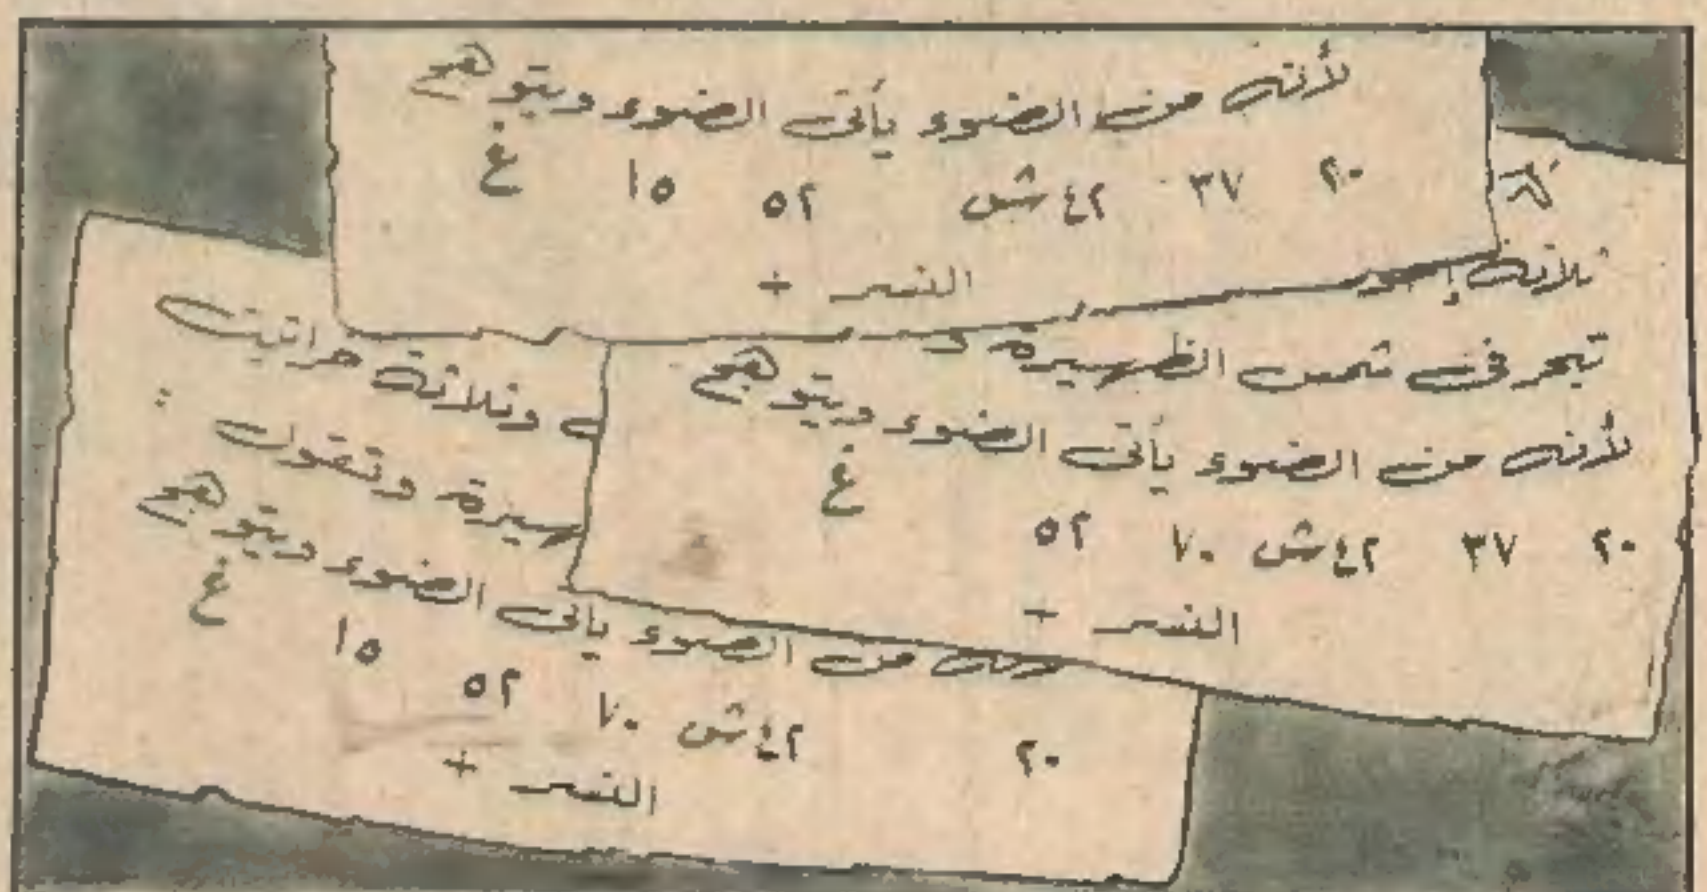 لأنه من الضوء يأتى الضوء ويتوهج
٢٠ ٣٧ ٤٢ ش ٥٢ ١٥ غ
النسر +
ثلاثة
تبحر فى شمس الظهيرة و
لأنه من الضوء يأتى الضوء ويتوهج
٢٠ ٣٧ ٤٢ ش ٧٠ ٥٢ غ
النسر +
وثلاثة
ـهيرة وتقول :
من الضوء يأتى الضوء ويتوهج
٢٠ ٤٢ ش ٧٠ ٥٢ ١٥ غ
النسر +